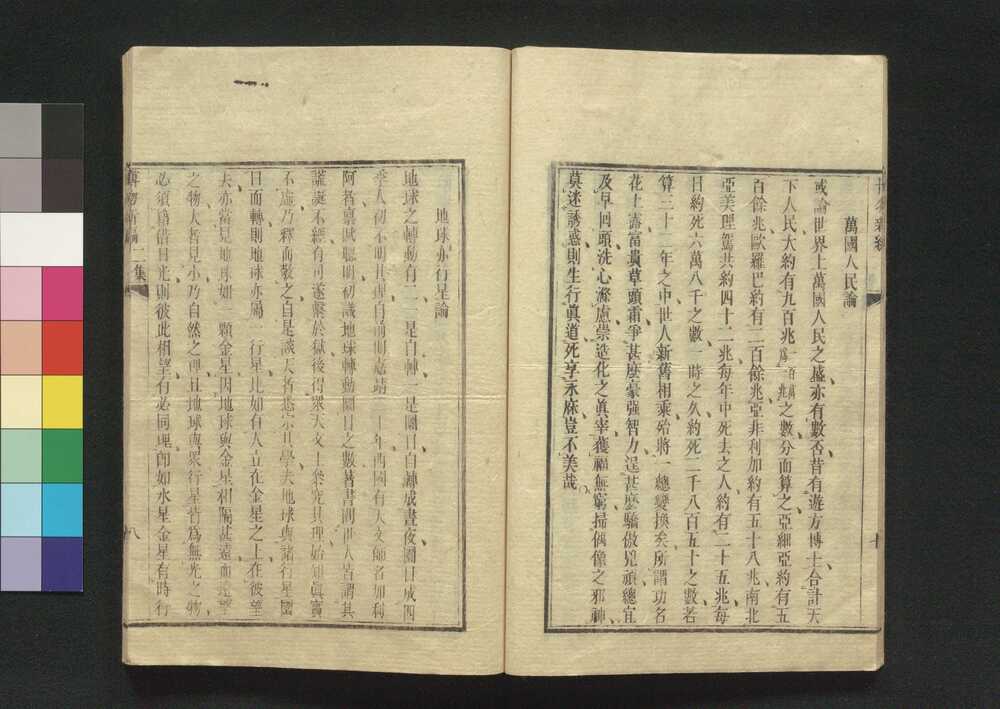 萬國人民論
或論世界上萬國人民之盛亦有數否昔有遊方博士合計天
下人民大約有九百兆一百萬爲一兆之數分而算之亞細亞約有五
百餘兆歐羅巴約有二百餘兆亞非利加約有五十八兆南北
亞美理駕共約四十二兆每年中死去之人約有二十五兆每
日約死六萬八千之數一時之久約死二千八百五十之數若
算三十二年之中世人新舊相乘殆將一總變換矣所謂功名
花上露富貴草頭霜爭甚麼豪强智力逞甚麼驕傲兇頑總宜
及早回頭洗心滌慮崇造化之眞宰獲福無窮掃偶像之邪神
莫迷誘惑則生行眞道死享永庥豈不美哉
地球亦行星論
地球之轉動有二一是自轉一是圜日自轉成晝夜圜日成四
季人初不明其理自前明嘉靖二十年西國有天文師名加利
阿者稟賦聰明初識地球轉動圜日之數著書問世人皆謂其
謊誕不經有司遂繫於獄後得眾天文士參究其理始知眞實
不虛乃釋而敬之自是談天者悉宗其學夫地球與諸行星圜
日而轉則地球亦屬一行星比如有人立在金星之上在彼望
去亦當見地球如一顆金星因地球與金星相隔甚遠而遠望
之物大皆見小乃自然之理且地球與眾行星皆爲無光之物
必須藉借日光則彼此相望有必同理即如水星金星有時行
博物新編二集
八